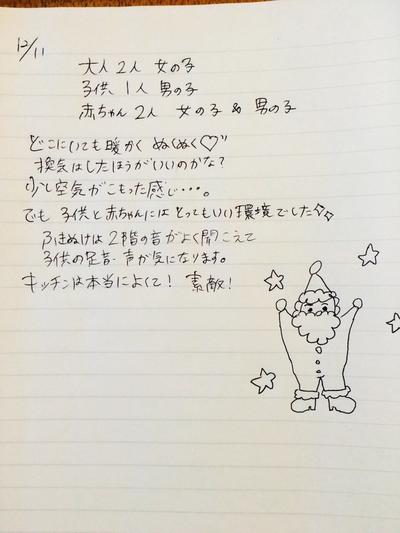 12/11
大人 2人 女の子
子供 1人 男の子
赤ちゃん 2人 女の子 & 男の子
どこにいても暖かく ぬくぬく♡"
換気はしたほうがいいのかな?
少し空気がこもった感じ・・・。
でも 子供と赤ちゃんには とってもいい環境でした☆☆
ふきぬけは 2階の音がよく聞こえて
子供の足音・声が気になります。
キッチンは本当によくて! 素敵!